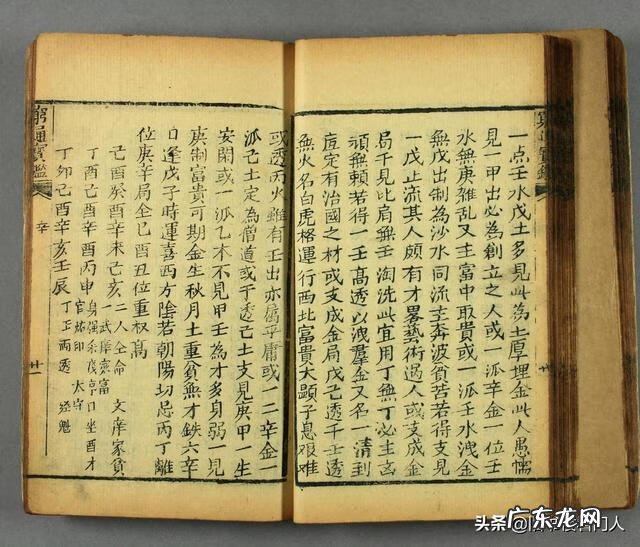 一点壬水戊土多見此為土厚埋金此人愚懦
見一甲出必為創立之人或一派辛金一位壬
水無庚雜乱又主富中取貴或一派壬水洩金
無戊出制為沙水同流主奔波貧苦若得支見
一戊止流其人頗有才畧藝術過人或支成金
局干見比肩無壬淘洗此宜用丁無丁必主凶
頑無賴若得一壬高透以洩羣金又名一清到
底定有治國之材或支成金局戊己透干壬透
無火名白虎格運行西北富貴大顕子息艱难
或透丙火雖有壬出亦属乎庸或一二辛金一
派己土定為僧道或于透己土支見庚甲一生
安閑或一派乙木不見甲壬為才多身弱一見
庚制富貴可期金生秋月土重貧無才鉄六辛
日逢戊子時運喜西方陰若朝陽切忌丙丁離
位庚辛局全巳酉丑位重权高
己酉癸酉辛未己亥 二人仝命 文庠家貧
武庠豪富
丁酉己酉辛酉丙申 日坐酉才
官佑印 太守
丁卯己酉辛亥壬辰 丁壬两透 经魁
窮通寶鑑 辛 廿一
头条
广东龙网